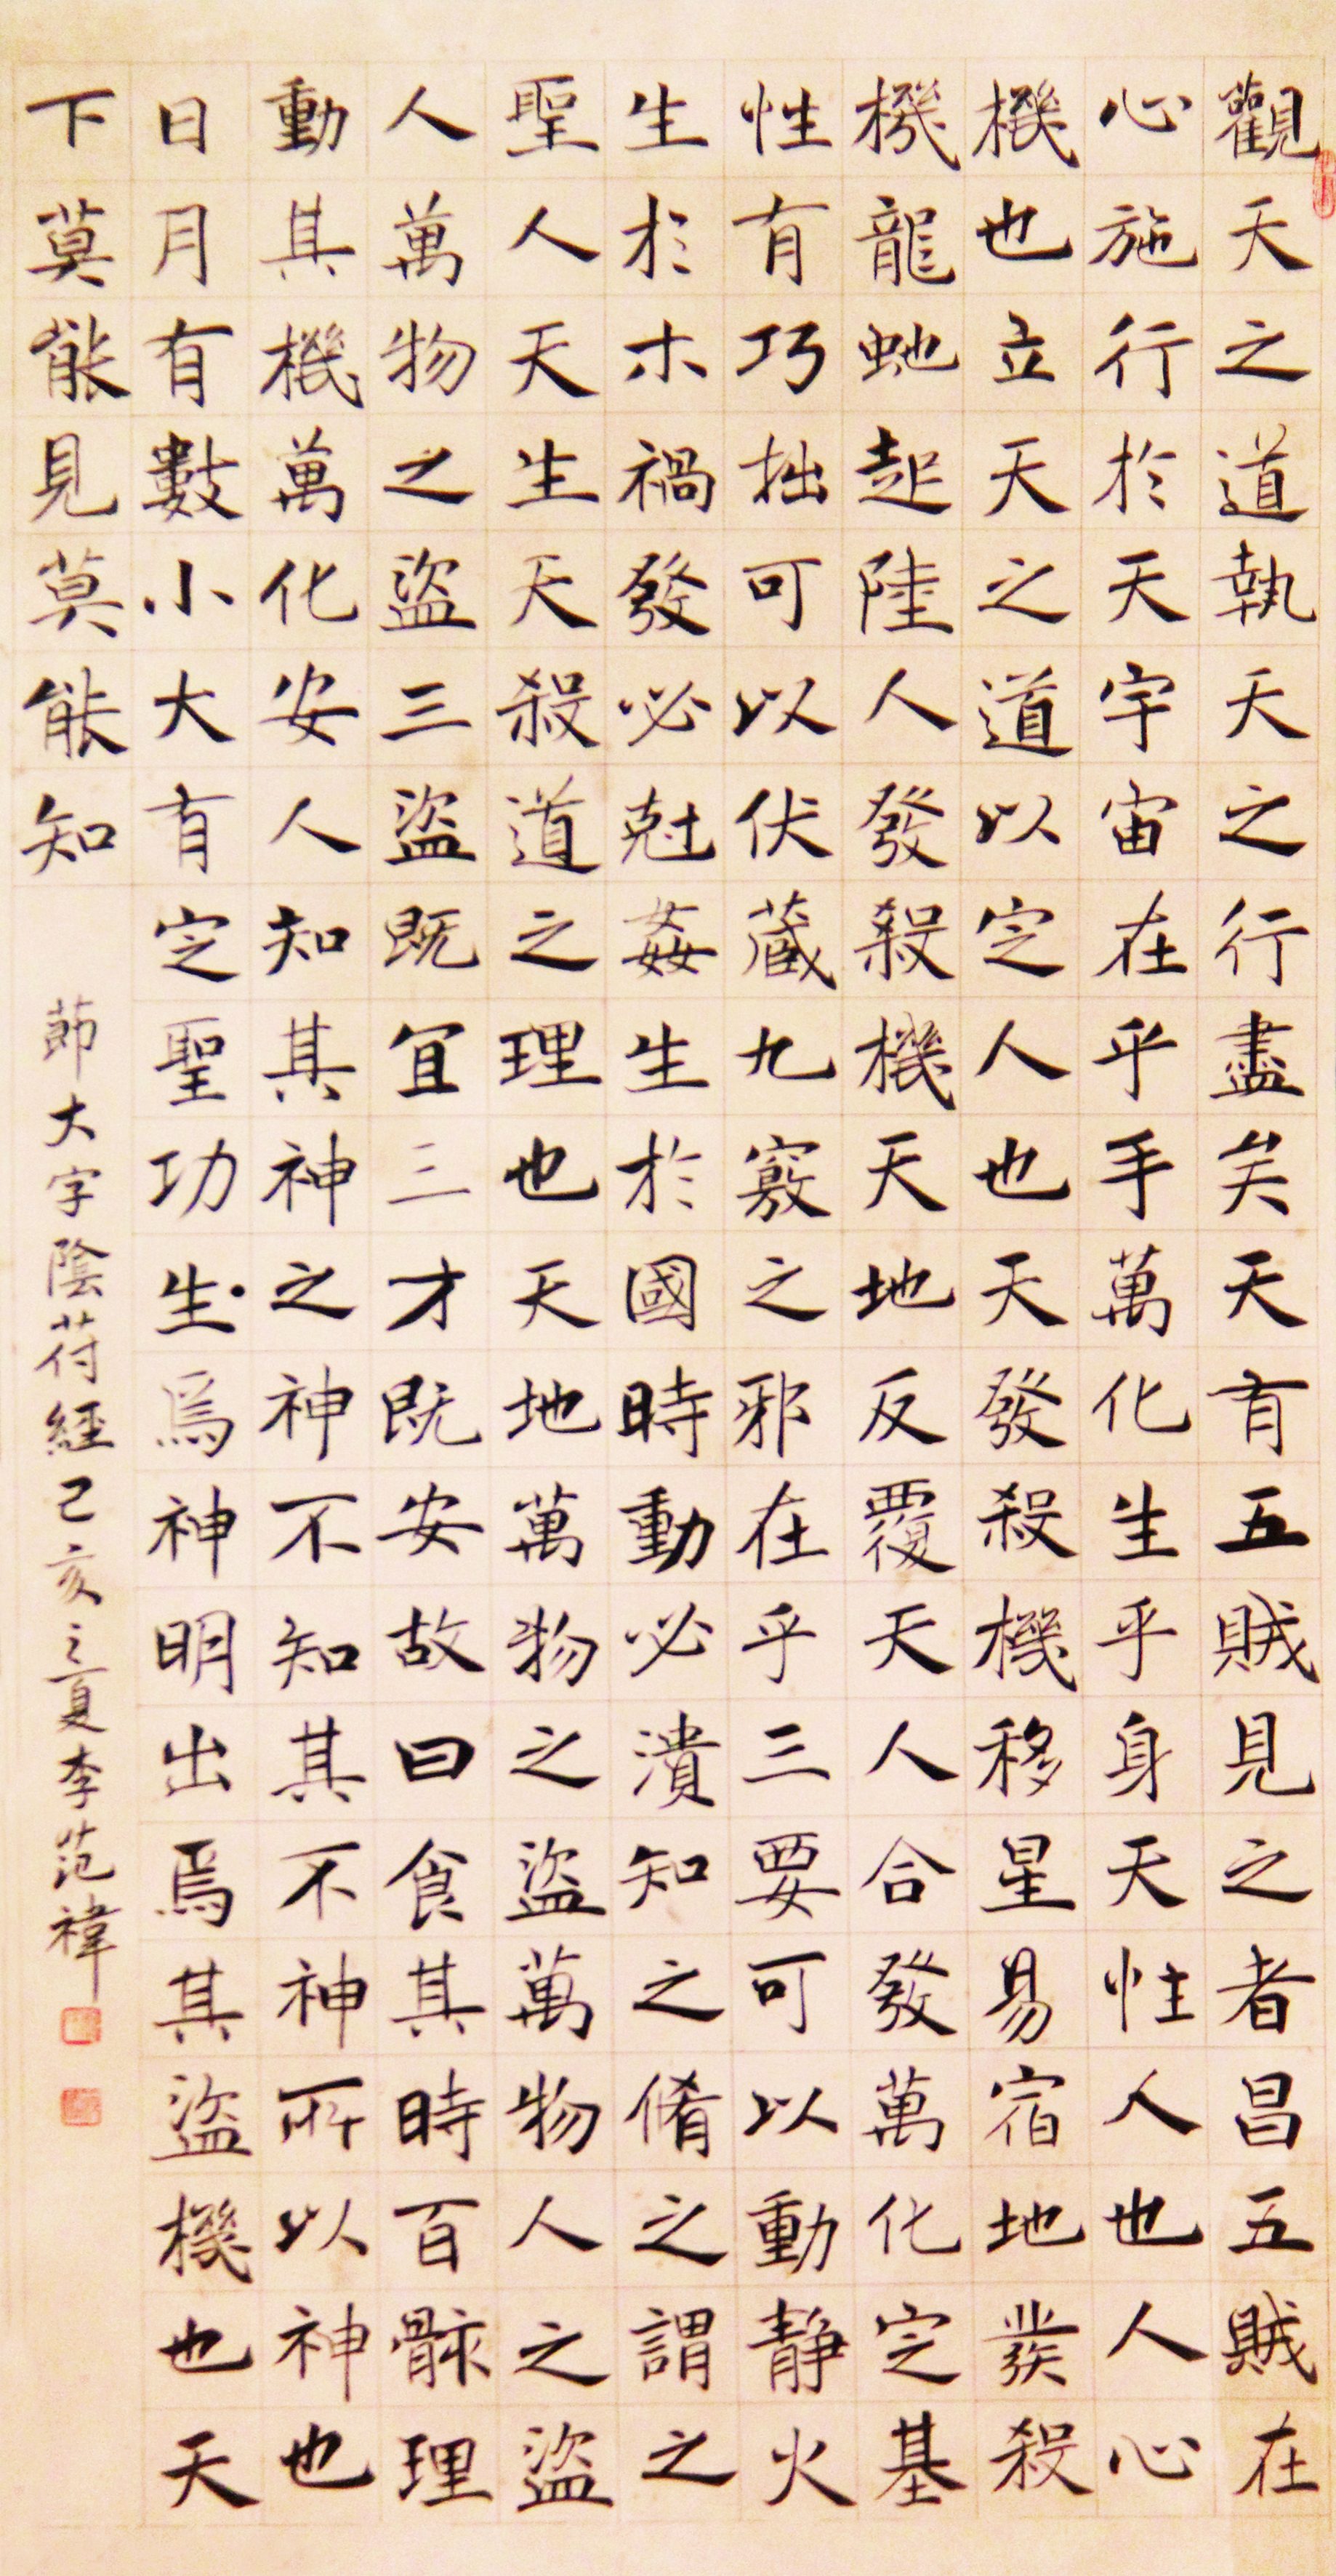 觀天之道執天之行盡矣天有五賊見之者昌五賊在
心施行於天宇宙在乎手萬化生乎身天性人也人心
機也立天之道以定人也天發殺機移星易宿地發殺
機龍虵起陸人發殺機天地反覆天人合發萬化定基
性有巧拙可以伏藏九竅之邪在乎三要可以動静火
生於木禍發必尅姦生於國時動必潰知之脩之謂之
聖人天生天殺道之理也天地萬物之盜萬物人之盜
人萬物之盜三盜既宜三才既安故曰食其時百骸理
動其機萬化安人知其神之神不知其不神所以神也
日月有數小大有定聖功生焉神明出焉其盜機也天
下莫能見莫能知
莭大字陰苻經己亥之夏李范褘